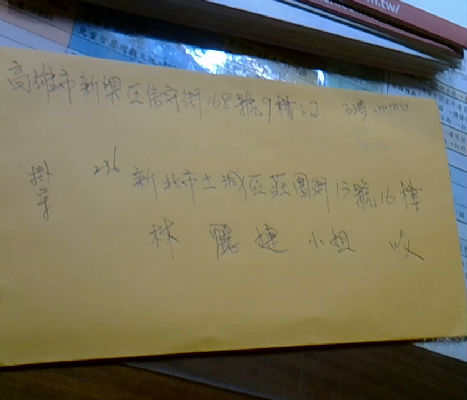 高雄市新興區信守街168號9樓之2
掛號
236 新北市土城區莊園街13號16樓
林麗婕小姐 收